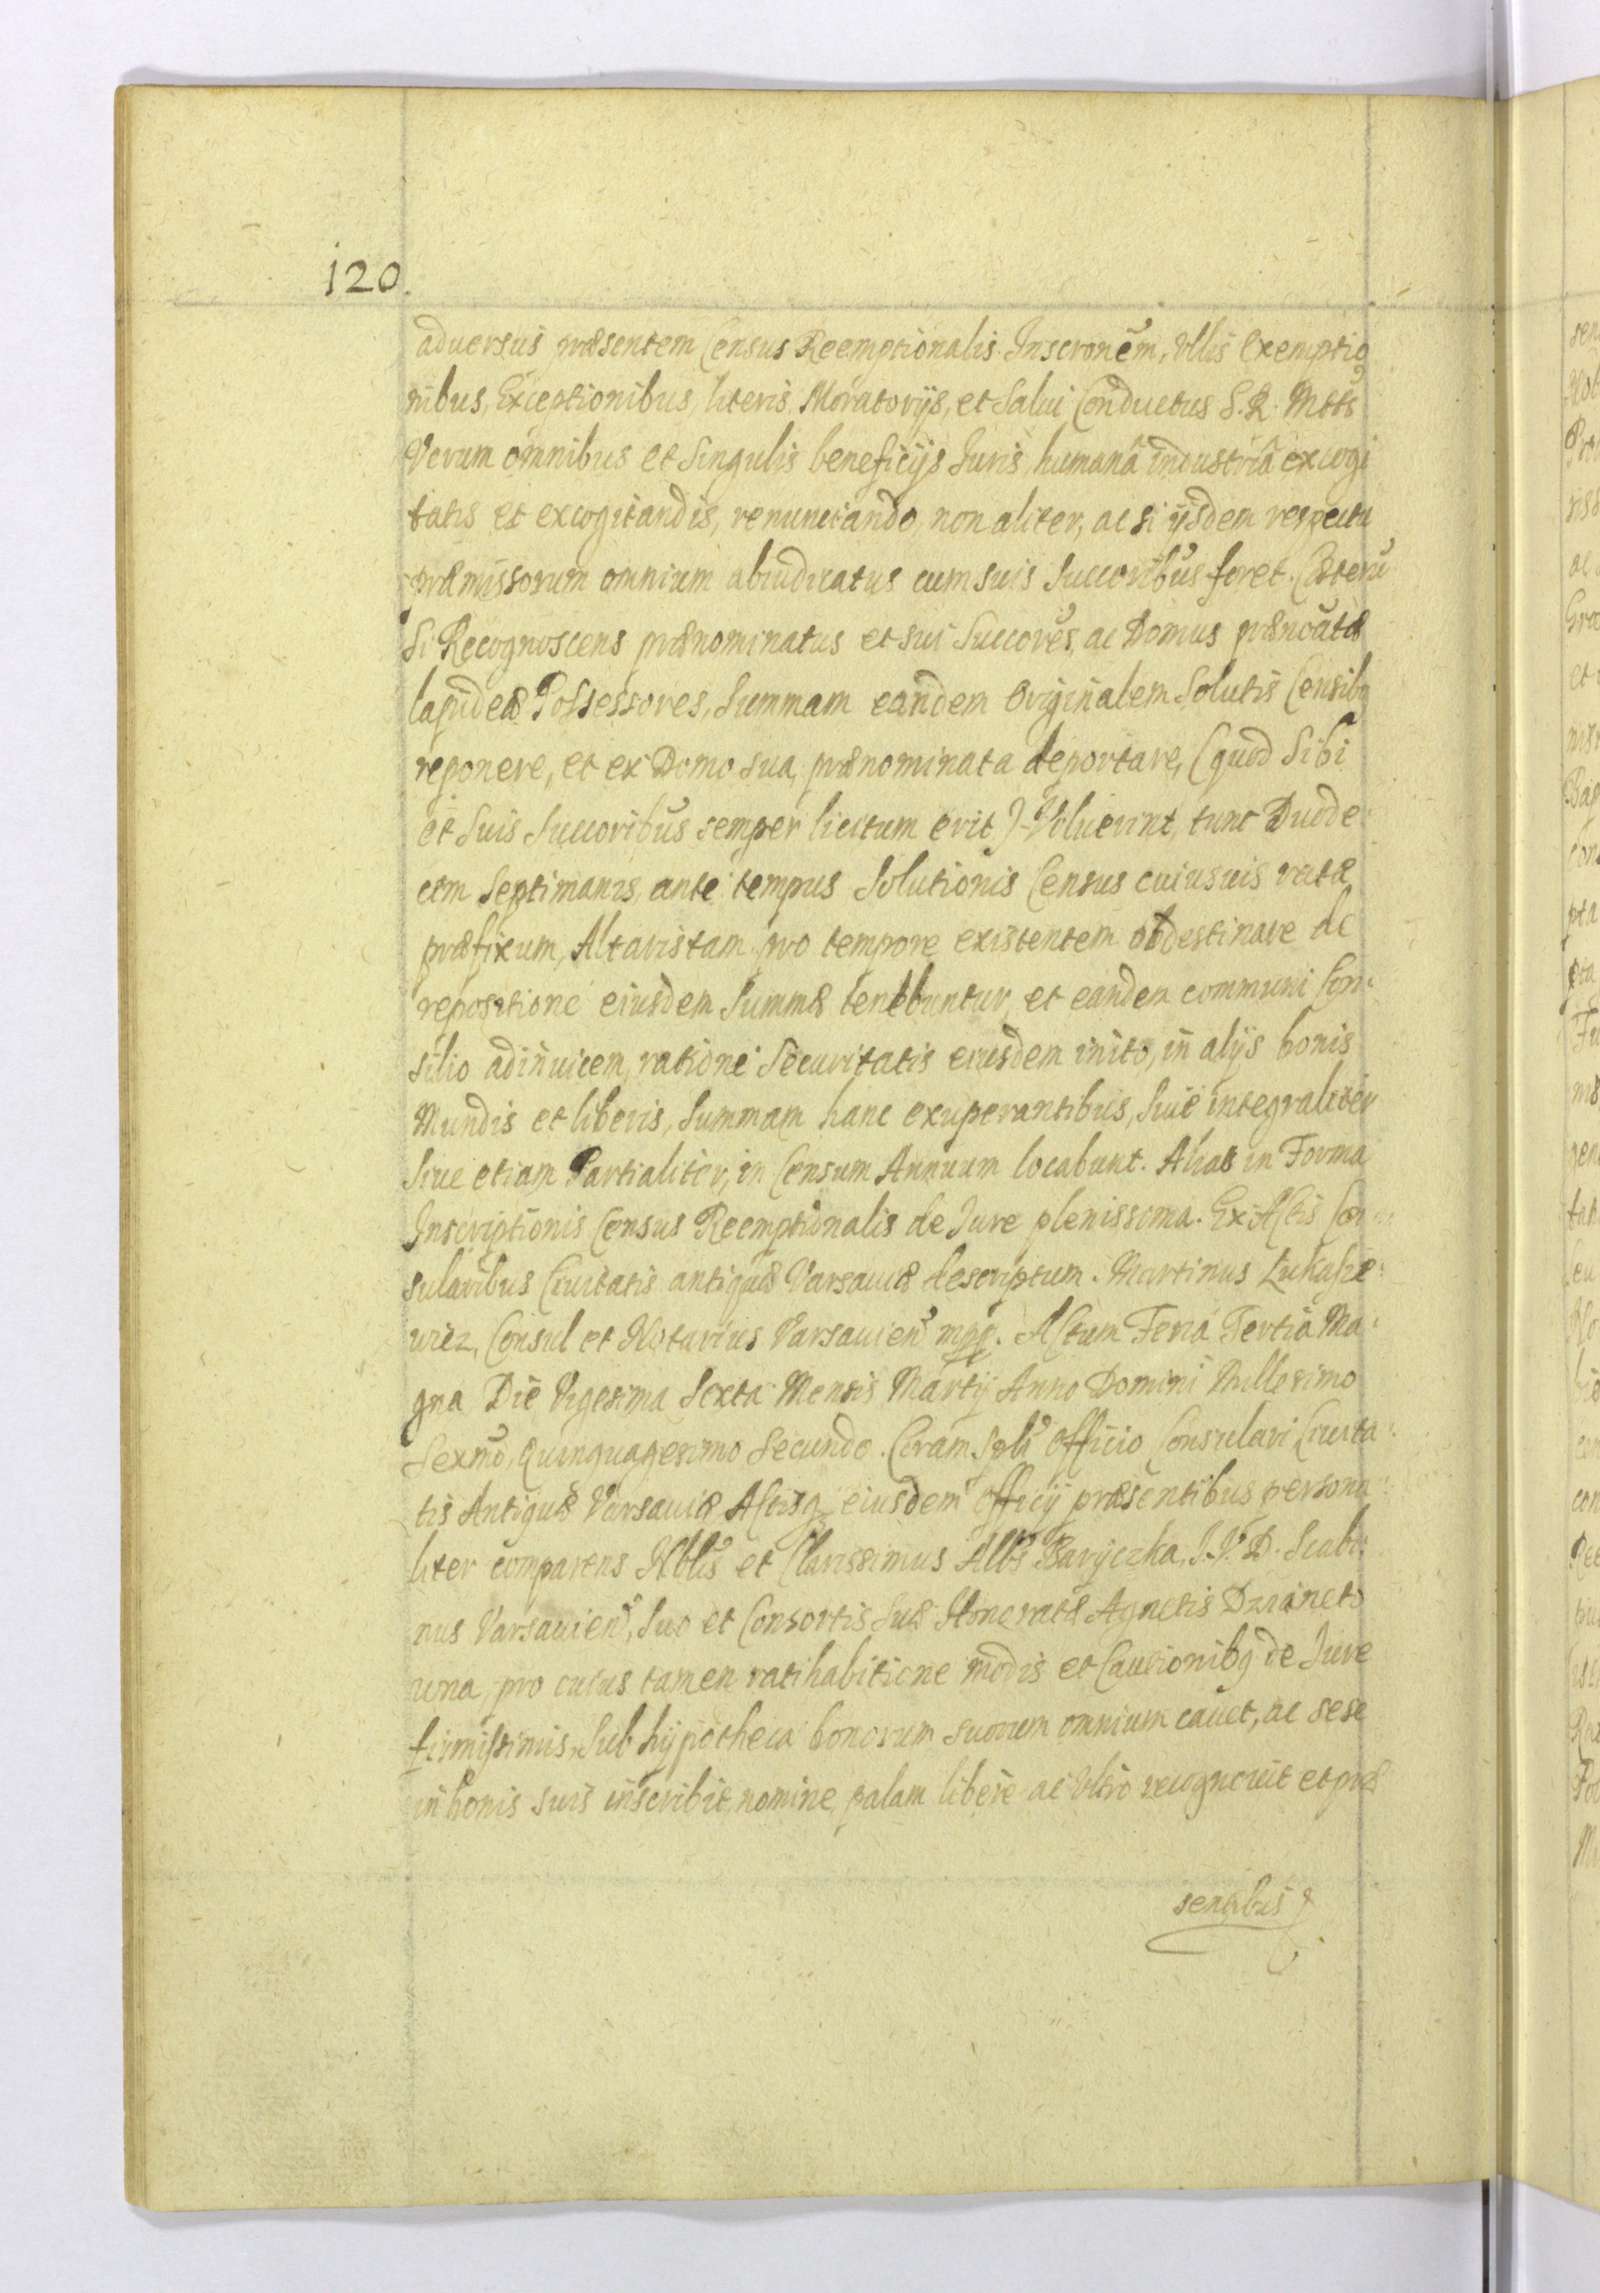 120.
aduersus præsentem Census Reemptionalis Inscronem̃, Vllis Exemptio
nibus, Exceptionibus, literis Moratorijs, et Salui Conductus S. R. Mttis
Verum omnibus et Singulis beneficijs Juris humanâ industriâ excogi
tatis et excogitandis, renunciando, non aliter, ac si ijsdem respectu
præmissorum omnium abiudicatus cum suis Succoribus foret. Cæterũ
Si Recognoscens prænominatus et sui Succores, ac Domus prænoatæ
lapideæ Possessores, Summam eandem Originalem Solutis Censibꝰ
reponere, et ex Domo sua prænominata deportare, (quod Sibi
et Suis Succoribus semper licitum erit) Voluerint, tunc Duode
cim Septimanis, ante tempus Solutionis Census cuiusuis ratæ
præfixum, Altaristam pro tempore existentem obdestinare de
repositione eiusdem Summæ tenebuntur, et eandem communi Con:
silio adinuicem, ratione Securitatis eiusdem inito, in alijs bonis
Mundis et liberis, Summam hanc exuperantibus, Siue integraliter
Siue etiam Partialiter, in Censum Annuum locabunt. Alias in Forma
Inscriptionis Census Reemptionalis de Jure plenissima. Ex Actis Con:
sularibus Ciuitatis antiquæ Varsauiæ descriptum. Martinus Lukasze:
wicz, Consul et Notarius Varsauien̄ mpp. Actum Feriâ Tertiâ Ma:
gna Die Vigesima Sexta Mensis Martij Anno Domini Millesimo
Sexmo, Quinquagesimo Secundo. Coram Spli Officio Consulari Ciuita:
tis Antiquæ Varsauiæ Actisq eiusdem Officij præsentibus persona:
liter comparens Nblis et Clarissimus Albs Baryczka, I. V. D. Scabi:
nus Varsauien̄, Suo et Consortis Suæ Honoratæ Agnetis Dzianeto
una, pro cuius tamen ratihabitione modis et Cautionibꝰ de Jure
firmissimis, Sub hypotheca bonorum suorum omnium cauet, ac sese
in bonis suis inscribit, nomine, palam libere ac Vltro recognouit et præ
sentibus